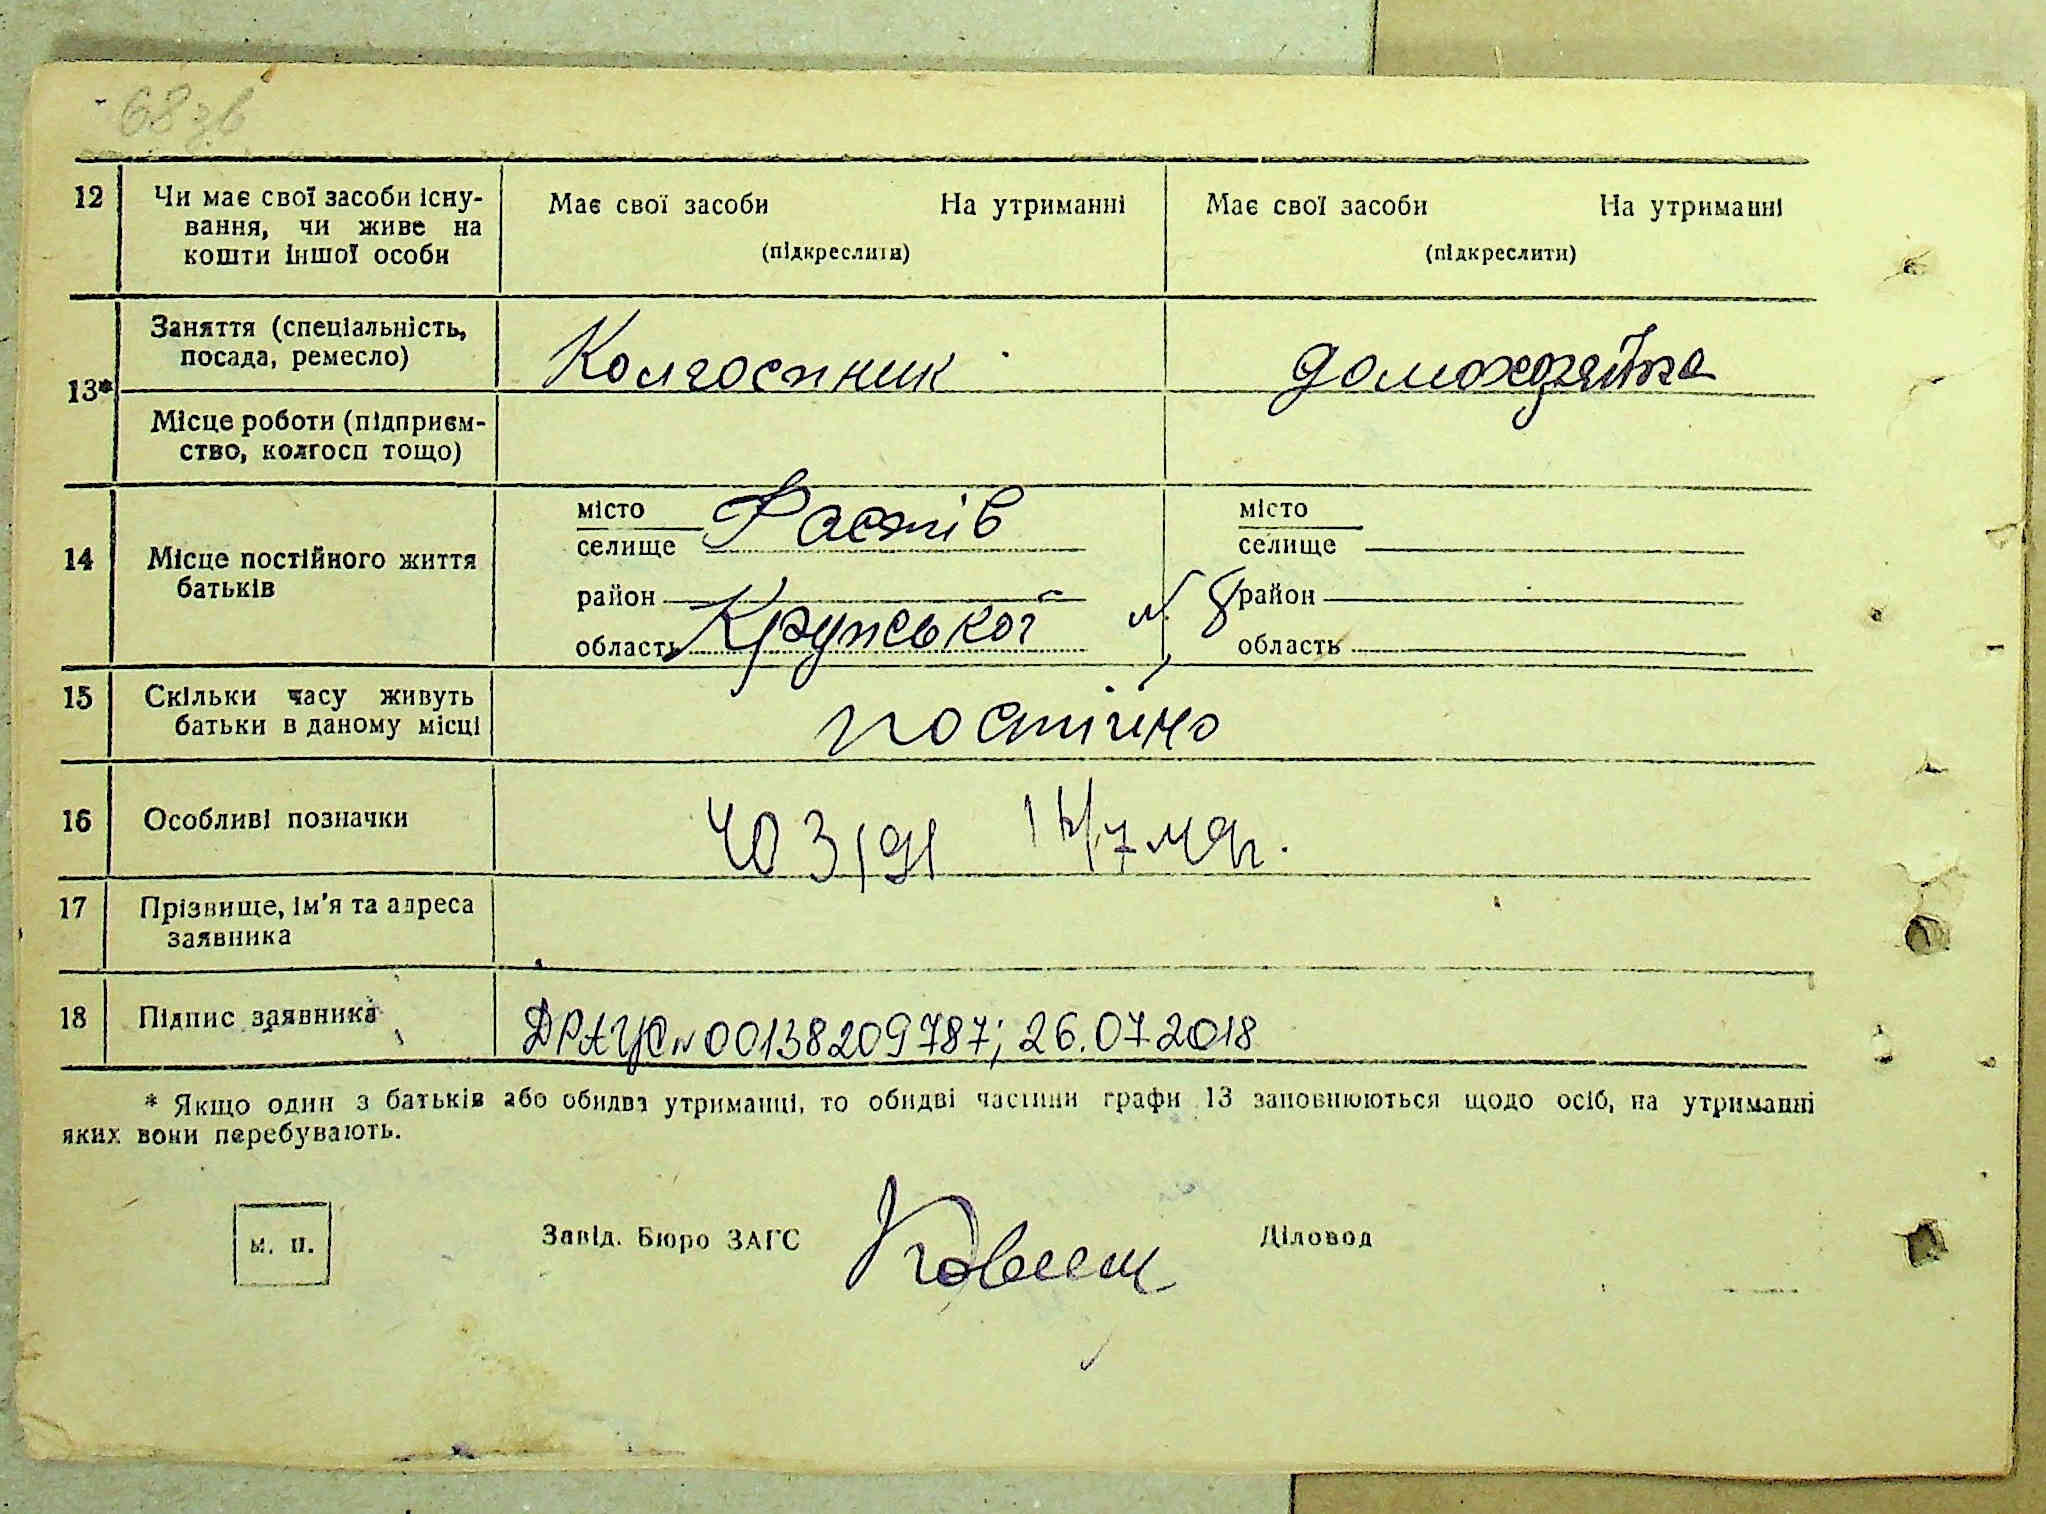 68 зв
12 Чи має свої засоби існу-
вання, чи живе на
кошти іншої особи
Має свої засоби На утриманні
(підкреслити)
Має свої засоби На утриманні
(підкреслити)
13*
Заняття (спеціальність,
посада, ремесло)
Колгоспник
домохозяйка
Місце роботи (підприєм-
ство, колгосп тощо)
14 Місце постійного життя
батьків
місто
селище Фастів
район
область Крупської N 8
місто
селище
район
область
15 Скільки часу живуть
батьки в даному місці
постійно
16 Особливі позначки
ЧО 3191
17 Прізвище, ім'я та адреса
заявника
18 Підпис заявника
ДРАЦС N 00138209787; 26.07.2018
* Якщо один з батьків або обидва утриманці, то обидві частини графи 13 заповнюються щодо осіб, на утриманні
яких вони перебувають.
м. п.
Завід. Бюро ЗАГС
Діловод